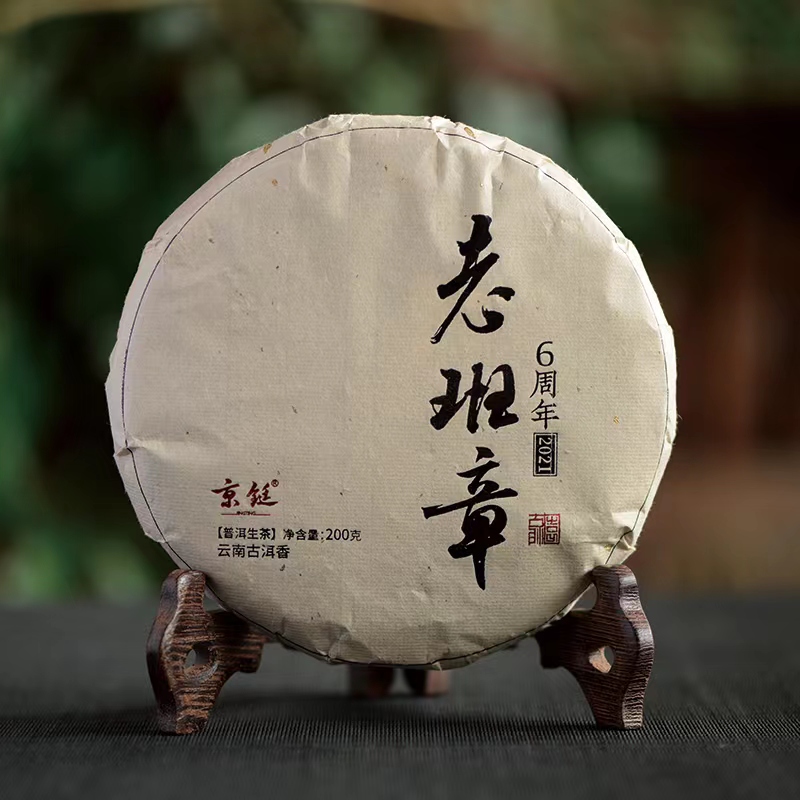 老班章
6周年
2021
京铤®
JINGTING
【普洱生茶】净含量:200克
云南古洱香